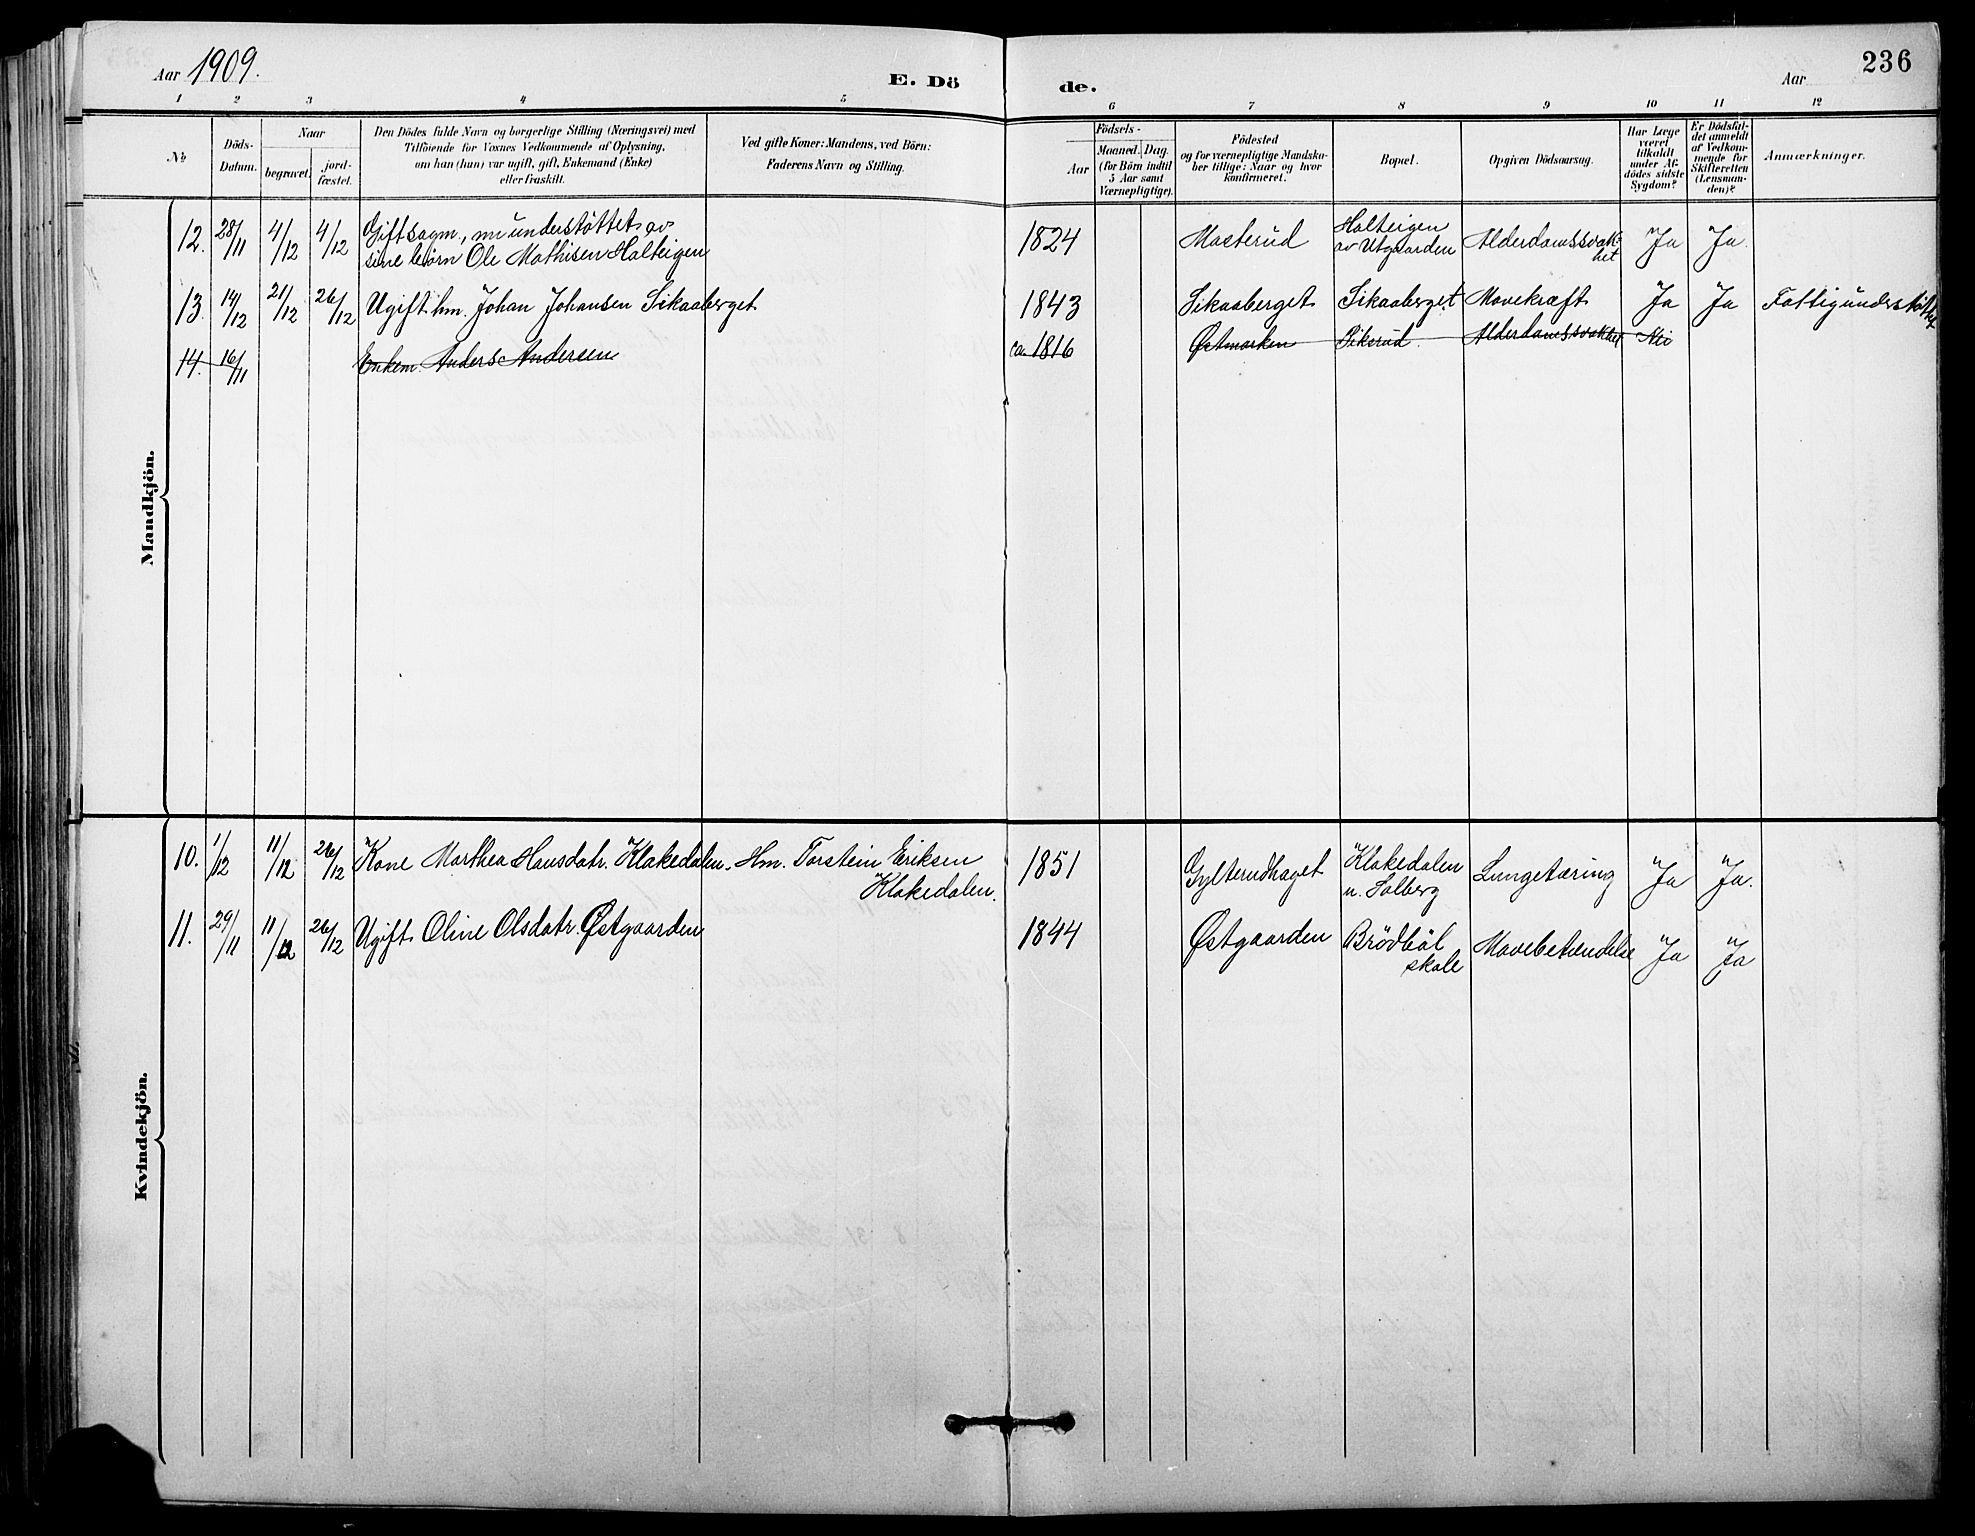 Aar 1909.
E. Dö
de.
Aar
236
1 2 3 4 5 6 7 8 9 10 11 12
No
Döds-
Datum.
Naar
begravet.
jord-
fæstet.
Den Dödes fulde Navn og borgerlige Stilling (Næringsvei) med
Tilföiende for Voxnes Vedkommende af Oplysning,
om han (hun) var ugift, gift, Enkemand (Enke)
eller fraskilt.
Ved gifte Koner: Mandens, ved Börn:
Faderens Navn og Stilling.
Födsels-
Aar
Maaned. Dag.
(for Börn indtil
5 Aar samt
Værnepligtige).
Födested
og for værnepligtige Mandska-
ber tillige: Naar og hvor
konfirmeret.
Bopæl.
Opgiven Dödsaarsag.
Har Læge
været
tilkaldt
under Af-
dödes sidste
Sygdom?
Er Dödsfal-
det anmeldt
af Vedkom-
mende for
Skifteretten
(Lensman-
den)?
Anmærkninger.
Mandkjön.
12. 28/11 4/12 4/12 Giftsagm., nu understöttet av
sine börn Ole Mathisen Halteigen
1824 Masterud Halteigen
av Utgaarden
Alderdomssvak-
het
Ja Ja.
13. 14/12 21/12 26/12 Ugift hm. Johan Johansen Sikaaberget
1843 Sikaaberget Sikaaberget Mavekræft Ja Ja Fattigunderstöttet
14. 16/11 Enkem. Anders Andersen
ca. 1816 Östmarken Siksrud. Alderdomssvakhet Nei
Kvindekjön.
10. 1/12 11/12 26/12 Kone Marthea Hansdatr. Klakedalen. Hm. Torstein Eriksen
Klakedalen.
1851 Gylterudhaget Klakedalen
u. Solberg
Lungetæring Ja Ja.
11. 29/11 11/12 26/12 Ugift Oline Olsdatr. Østgaarden
1844 Østgaarden Brödböl
skole
Mavebetændelse Ja Ja